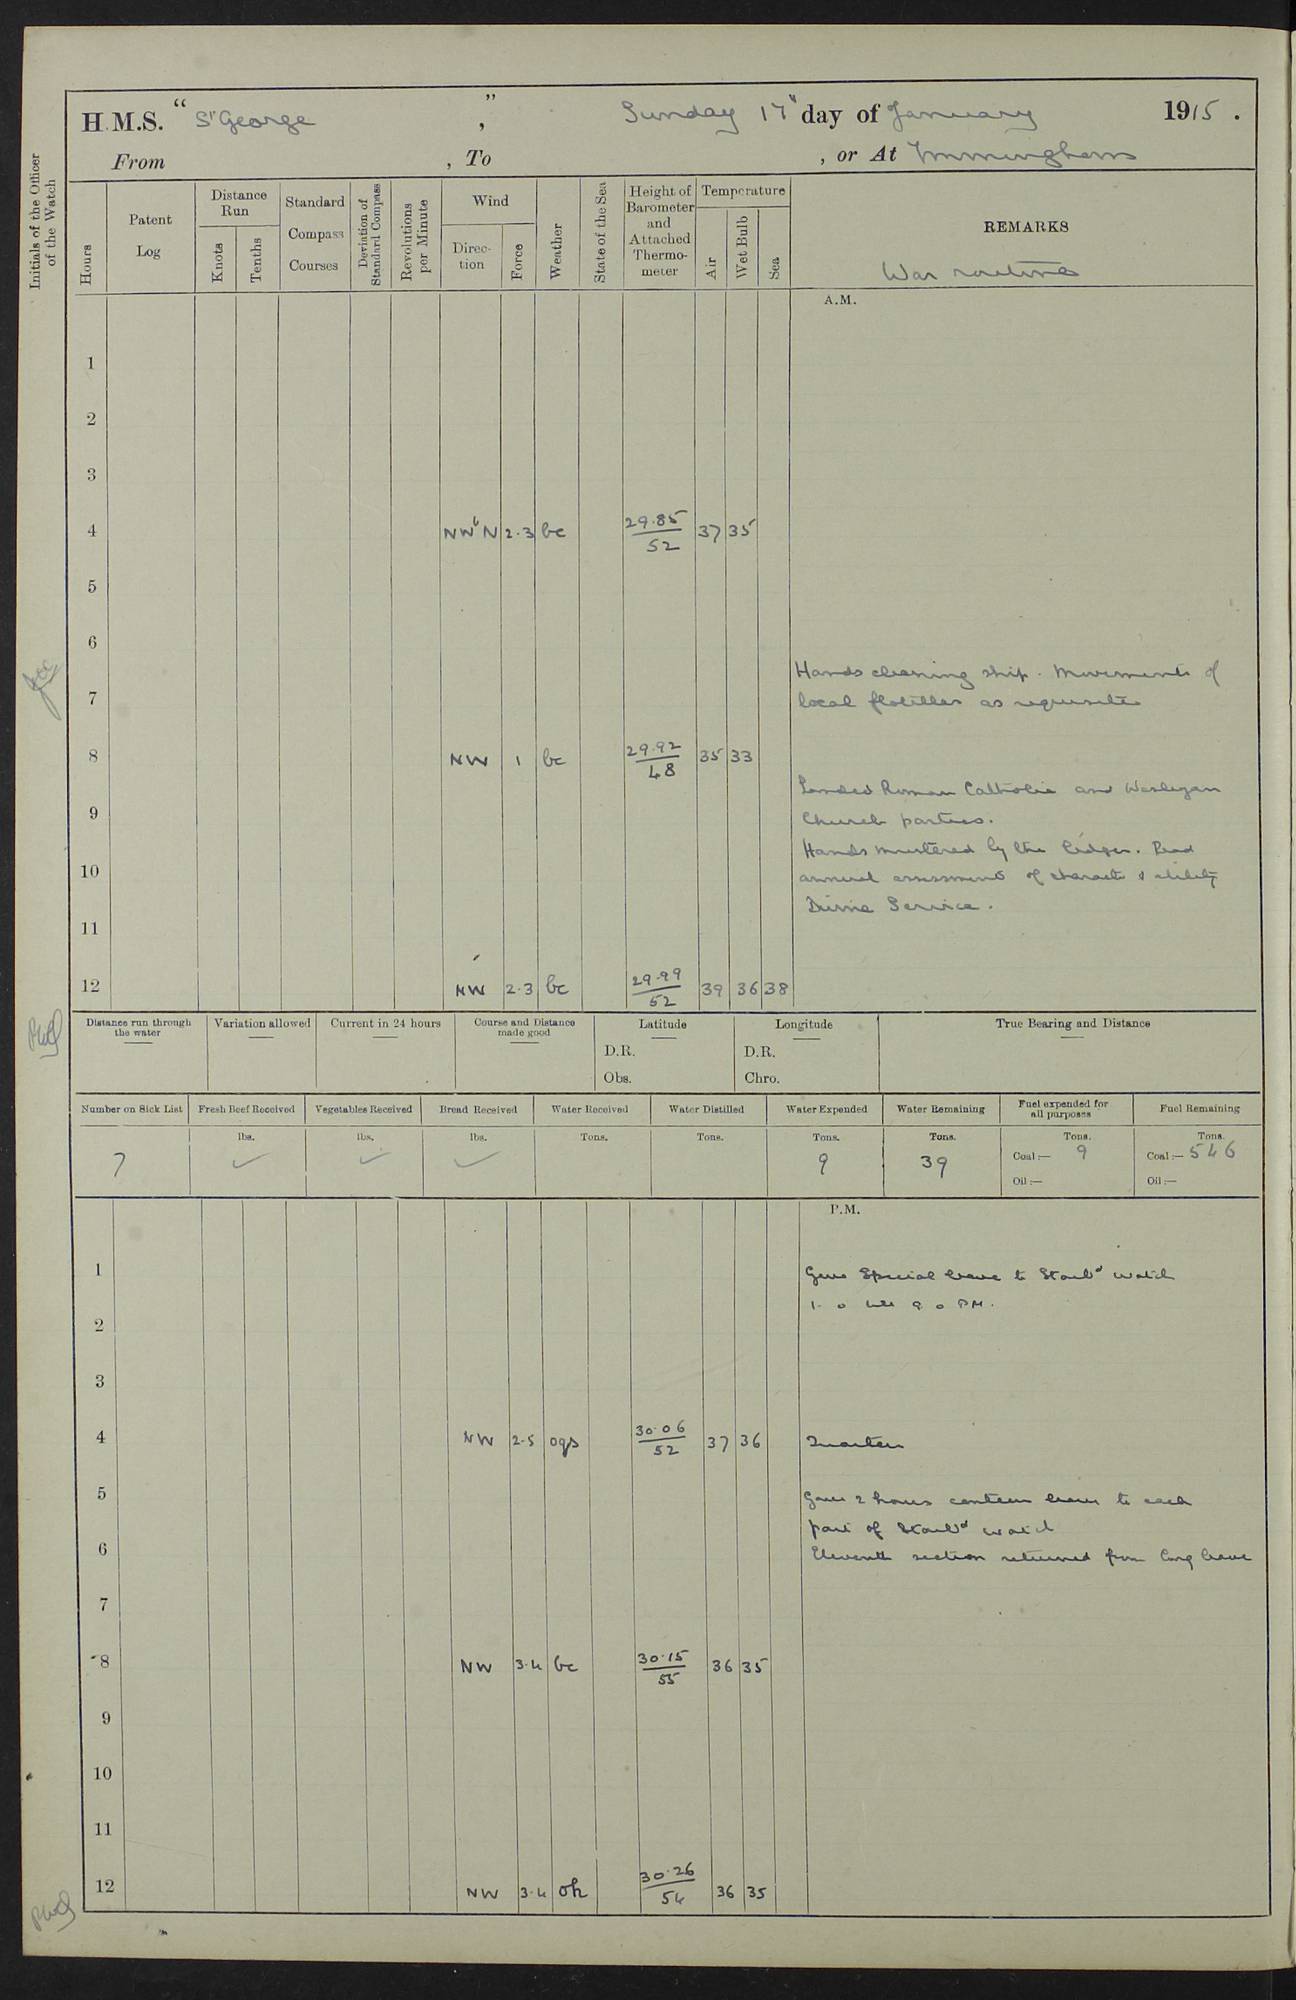 H.M.S. "St George", Sunday 17th day of January 1915.
From , To , or At Immingham
Initials of the Officer of the Watch
Hours
Patent Log
Distance Run
Knots
Tenths
Standard Compass Courses
Deviation of Standard Compass
Revolutions per Minute
Wind
Direc-tion
Force
Weather
State of the Sea
Height of Barometer and Attached Thermo-meter
Temperature
Air
Wet Bulb
Sea
REMARKS
War routine
A.M.
1
2
3
4 NWbN 2.3 bc 29.85/52 37 35
5
6
Hands cleaning ship. Movements of
7 local flotillas as requisite
8 NW 1 bc 29.92/48 35 33
Landed Roman Catholic and Wesleyan
9 Church parties.
Hands mustered by the ledger. Read
10 annual assessment of character & ability
Divine Service.
11
12 NW 2.3 bc 29.99/52 39 36 38
Distance run through the water
Variation allowed
Current in 24 hours
Course and Distance made good
Latitude
D.R.
Obs.
Longitude
D.R.
Chro.
True Bearing and Distance
Number on Sick List
Fresh Beef Received
Vegetables Received
Bread Received
Water Received
Water Distilled
Water Expended
Water Remaining
Fuel expended for all purposes
Fuel Remaining
lbs. lbs. lbs. Tons. Tons. Tons. Tons. Tons. Tons.
7 ✓ ✓ ✓ 9 39 Coal:— 9 Coal:— 546
Oil:— Oil:—
P.M.
1 Gave Special leave to Starbd watch
1.0 till 9.0 PM.
2
3
4 NW 2.5 ogs 30.06/52 37 36 Quarters
5 Gave 2 hours canteen leave to each
part of Starbd watch
6 Eleventh section returned from long leave
7
8 NW 3.4 bc 30.15/55 36 35
9
10
11
12 NW 3.4 oh 30.26/54 36 35